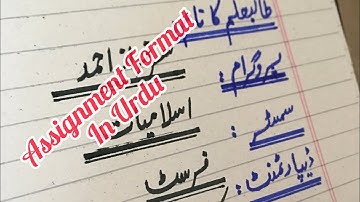 طالبعلم کا نام
احمد
پروگرام : اسلامیات
سمسٹر : فرسٹ
ڈیپارٹمنٹ :
Assignment Format
In Urdu